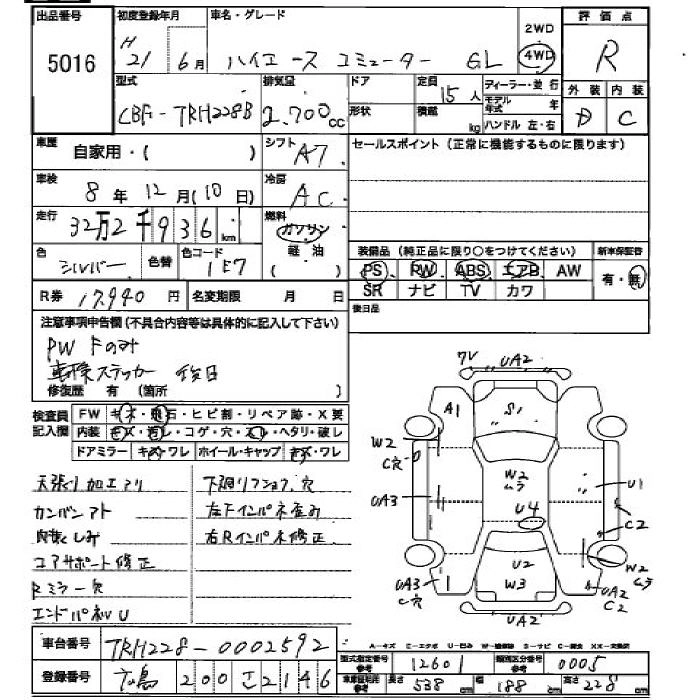 出品番号 5016
初度登録年月 H21年 6月
車名・グレード ハイエース コミューター GL
2WD 4WD
評価点 R
外装 D 内装 C
型式 CBF-TRH228B
排気量 2.700cc
ドア 形状
定員 15人
積載 kg
ディーラー・並行
モデル年式 年
ハンドル 左・右
車歴 自家用・( )
シフト A7
セールスポイント(正常に機能するものに限ります)
車検 8年12月(10日)
冷房 AC
走行 32万2千936km
燃料 ガソリン 軽油
色 シルバー 色替
色コード 1E7
装備品(純正品に限り○をつけてください)
PS PW ABS エアB AW
SR ナビ TV カワ
新車保証書 有・無
R券 17,940円
名変期限 月 日
後日品
注意事項申告欄(不具合内容等は具体的に記入して下さい)
PW Fのみ
車検ステッカー 後日
修復歴 有(箇所 )
検査員記入欄
FW キズ・飛石・ヒビ割・リペア跡・X要
内装 キズ・汚レ・コゲ・穴・スレ・ヘタリ・破レ
ドアミラー キズ・ワレ ホイール・キャップ キズ・ワレ
天張り加工アリ
カンバンアト
コアサポート修正
Rミラー欠
エンドパネルU
下廻りフショク穴
左Fインパネ歪み
右Rインパネ修正
7V UA2
A1 S1
W2 C穴
W2 ムラ
U4
UA3
U1
C2
UA3 C穴
U2
W3
W2 ムラ
UA2 C2
UA2
A-キズ E-エクボ U-凹み W-補修跡 S-サビ C-腐食 XX-交換済
車台番号 TRH228-0002592
登録番号 広島 200 さ 2146
型式指定番号 参考 12601
類別区分番号 参考 0005
車庫証明用 参考 長さ 538cm 幅 188cm 高さ 228cm